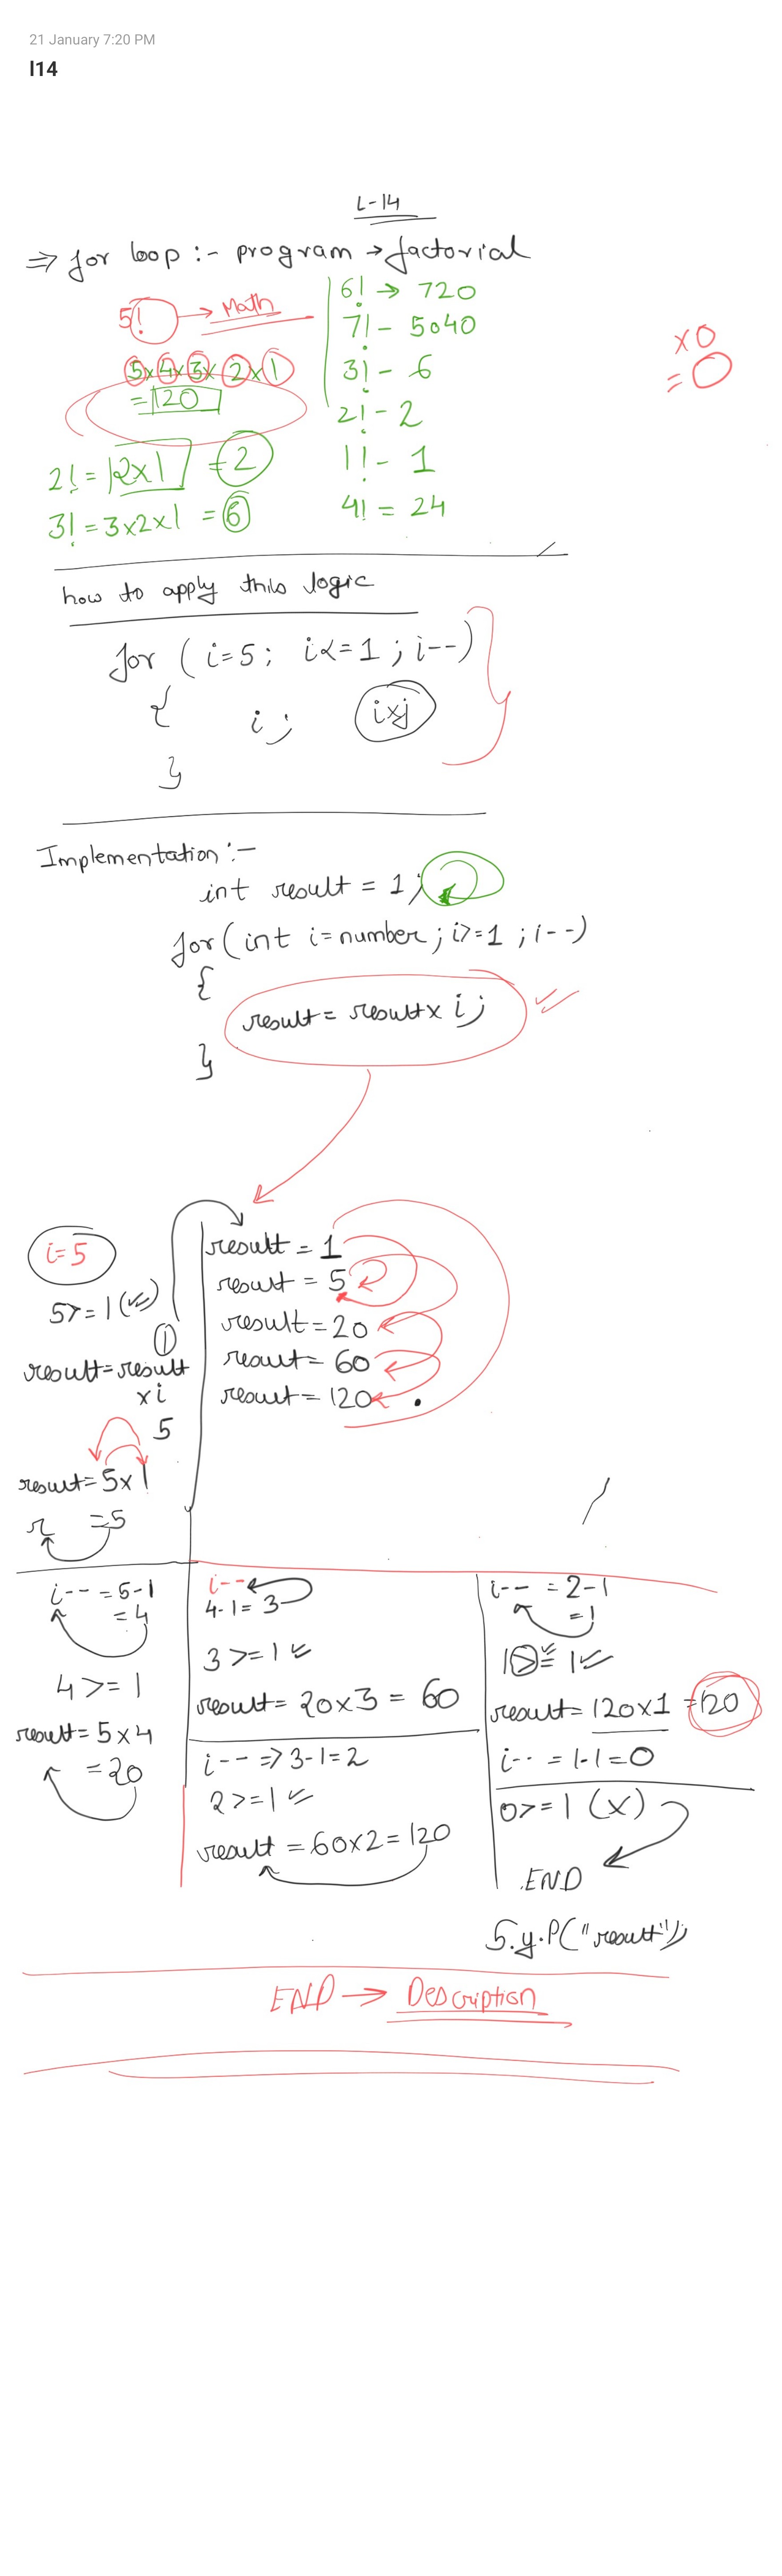 21 January 7:20 PM
l14
L-14
⇒ for loop :- program → factorial
5! → Math
5x4x3x2x1
= 120
2! = 2x1 = 2
3! = 3x2x1 = 6
6! → 720
7! - 5040
3! - 6
2! - 2
1! - 1
4! = 24
x0
= 0
how to apply this logic
for ( i=5; i<=1 ; i--)
{ i; ixj
}
Implementation :-
int result = 1;
for(int i=number; i>=1 ; i--)
{
result = result x i;
}
i=5
5>=1(✓)
1
result=result
xi
5
result=5x1
r =5
result = 1
result = 5
result = 20
result = 60
result = 120
i-- = 5-1
= 4
4 >= 1
result = 5x4
= 20
i--
4-1= 3
3 >= 1 ✓
result = 20x3 = 60
i-- => 3-1=2
2 >= 1 ✓
result = 60x2 = 120
i-- = 2-1
= 1
1 >= 1 ✓
result = 120x1 = 120
i-- = 1-1=0
0>=1 (x)
END
S.y.P("result");
END → Description